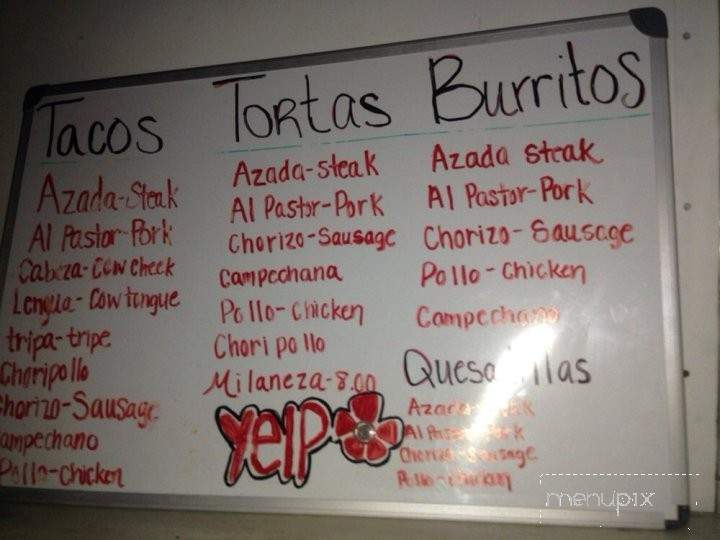 Tacos
Azada-Steak
Al Pastor-Pork
Cabeza-Cow cheek
Lengua-Cow tongue
tripa-tripe
Choripollo
Chorizo-Sausage
ampechano
Pollo-chicken
Tortas
Azada-steak
Al Pastor-Pork
Chorizo-Sausage
Campechana
Pollo-chicken
Choripollo
Milaneza-8.00
Yelp
Burritos
Azada steak
Al Pastor-Pork
Chorizo-Sausage
Pollo-chicken
Campechano
Quesadillas
Azada-steak
Al Pastor-Pork
Chorizo-Sausage
Pollo-chicken
menupix